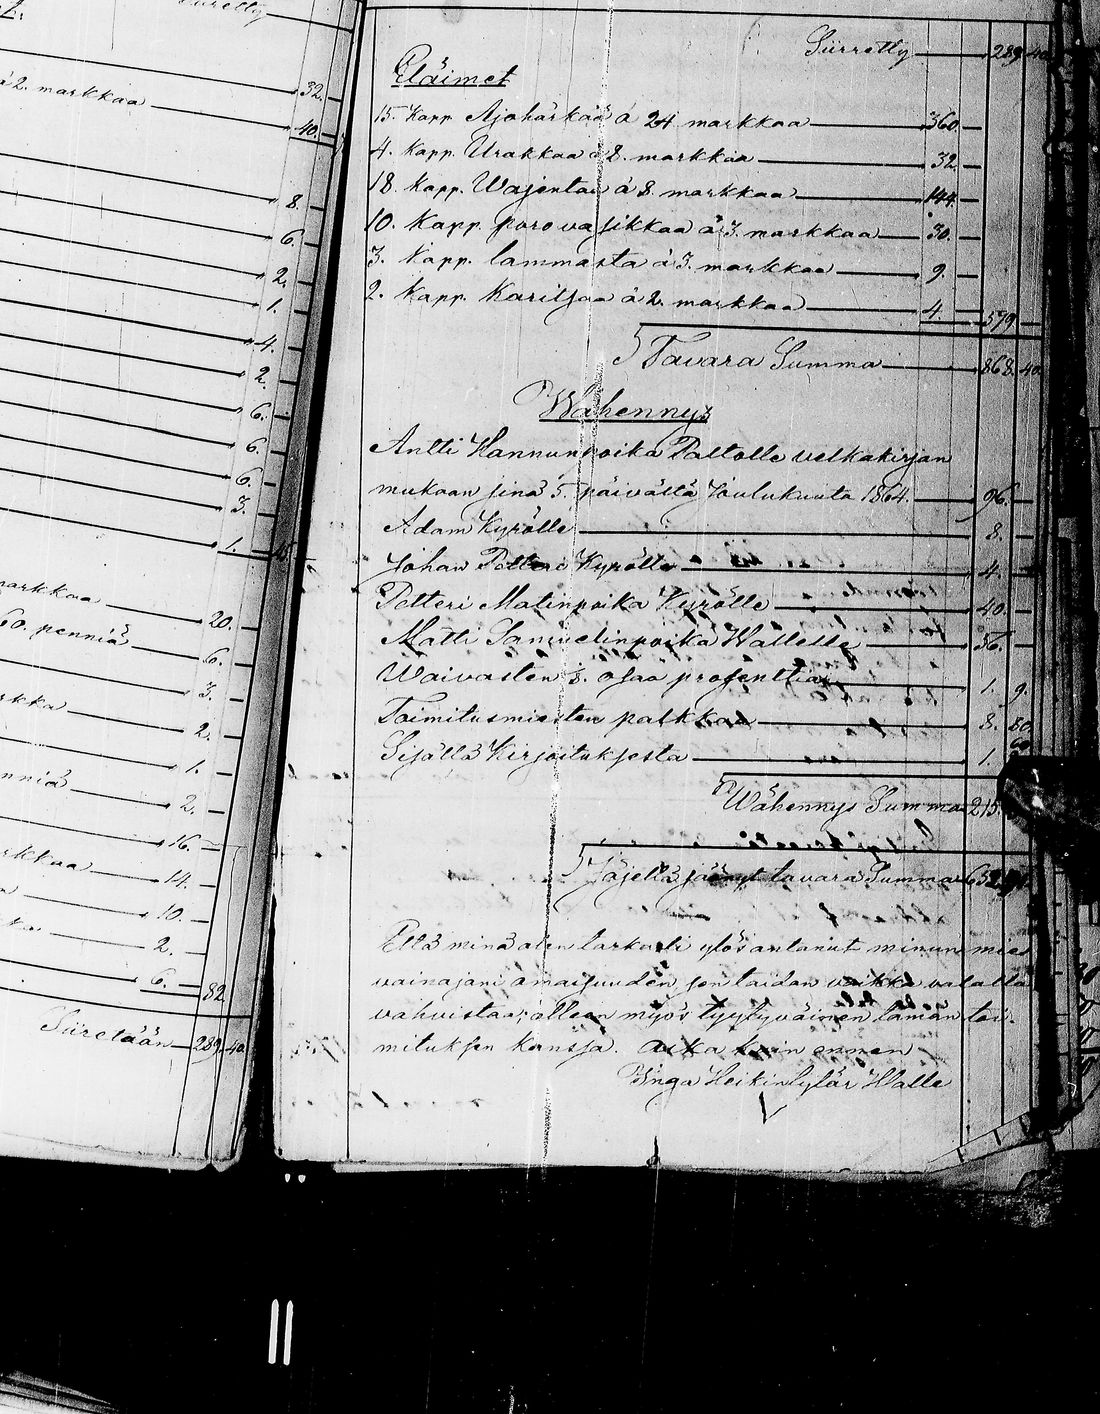 Siirretty
32.
à 2. markkaa
40.
8.
6.
2.
1.
4.
2.
6.
6.
6.
3.
1.
markkaa 20.
60. penniä 6.
3.
2.
1.
2.
16.
markkaa 14.
10.
2.
6. 82
Siiretään 289. 40
Siirretty 289 40
Eläimet
15. Kapp. Ajohärkää à 24 markkaa 360.
4. Kapp. Urakkaa à 8. markkaa 32.
18. Kapp. Wajentaa à 8. markkaa 144.
10. Kapp. porovasikkaa à 3. markkaa 30.
3. Kapp. lammasta à 3. markkaa 9.
2. Kapp. Karitsaa à 2. markkaa 4. 579
Tavara Summa 868. 40
Wähennys
Antti Hannunpoika Paltolle velkakirjan
mukaan siná 5. päivältä Joulukuuta 1864. 96.
Adam Kyrölle 8.
Johan Petteri Kyrölle 4.
Petteri Matinpoika Kyrölle 40.
Matti Samuelinpoika Wallelle 56.
Waivasten 8. osaa prosenttia 1. 9.
Toimitusmiesten palkkaa 8. 80.
Sisällä Kirjoituksesta 1. 60
Wähennys Summa 215.
Jäjellä jäänyt tavara Summa 652.
Että minä olen tarkasti ylösantanut minun mies
vainajani omaisuuden, sen taidan vaikka valalla
vahvistaa; ollen myös tyytyväinen tämän toi-
mituksen kanssa. aika kuin ennen
Inga Heikintytär Walle